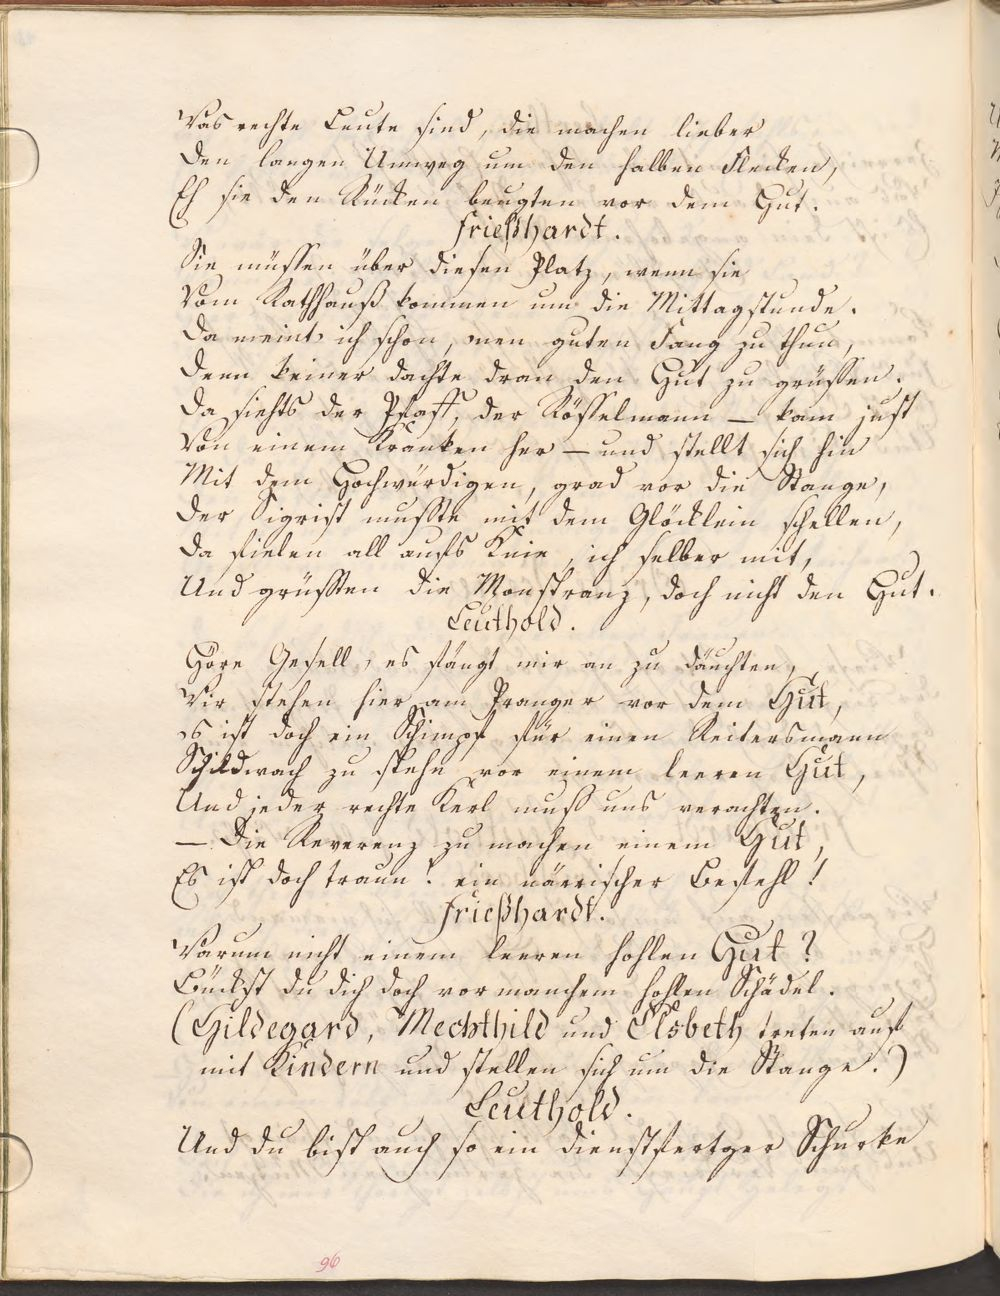 Was rechte Leute sind, die machen lieber
Den langen Umweg um den halben Flecken,
Eh sie den Rücken beugten vor dem Hut.
Frießhardt.
Sie müssen über diesen Platz, wenn sie
Vom Rathhauß kommen um die Mittagstunde.
Da meint' ich schon, 'nen guten Fang zu thun,
Denn keiner dachte dran den Hut zu grüssen.
Da siehts der Pfaff, der Rösselmann – kam just
Von einem Kranken her – und stellt sich hin
Mit dem Hochwürdigen, grad vor die Stange,
Der Sigrist mußte mit dem Glöcklein schellen,
Da fielen all aufs Knie, ich selber mit,
Und grüßten die Monstranz, doch nicht den Hut.
Leuthold.
Höre Gesell, es fängt mir an zu däuchten,
Wir stehen hier am Pranger vor dem Hut,
's ist doch ein Schimpf für einen Reitersmann
Schildwach zu stehn vor einem leeren Hut,
Und jeder rechte Kerl muß uns verachten.
– Die Reverenz zu machen einem Hut,
Es ist doch traun! ein närrischer Befehl!
Frießhardt.
Warum nicht einem leeren hohlen Hut?
Bückst du dich doch vor manchem hohlen Schädel.
(Hildegard, Mechthild und Elsbeth treten auf
mit Kindern und stellen sich um die Stange.)
Leuthold.
Und du bist auch so ein dienstfertger Schurke
96